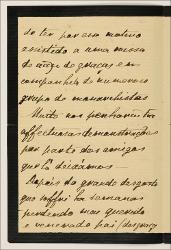 de ter por esse motivo
assistido a uma missa
de acção de graças em
companhia de numeroso
grupo de monarchistas
Muito nos penhorou tra
affectuosas demonstrações
por parte dos amigos
que lá deixámos
Depois do grande desgosto
que soffri ha semanas
perdendo meu querido
e venerado pai, desgosto